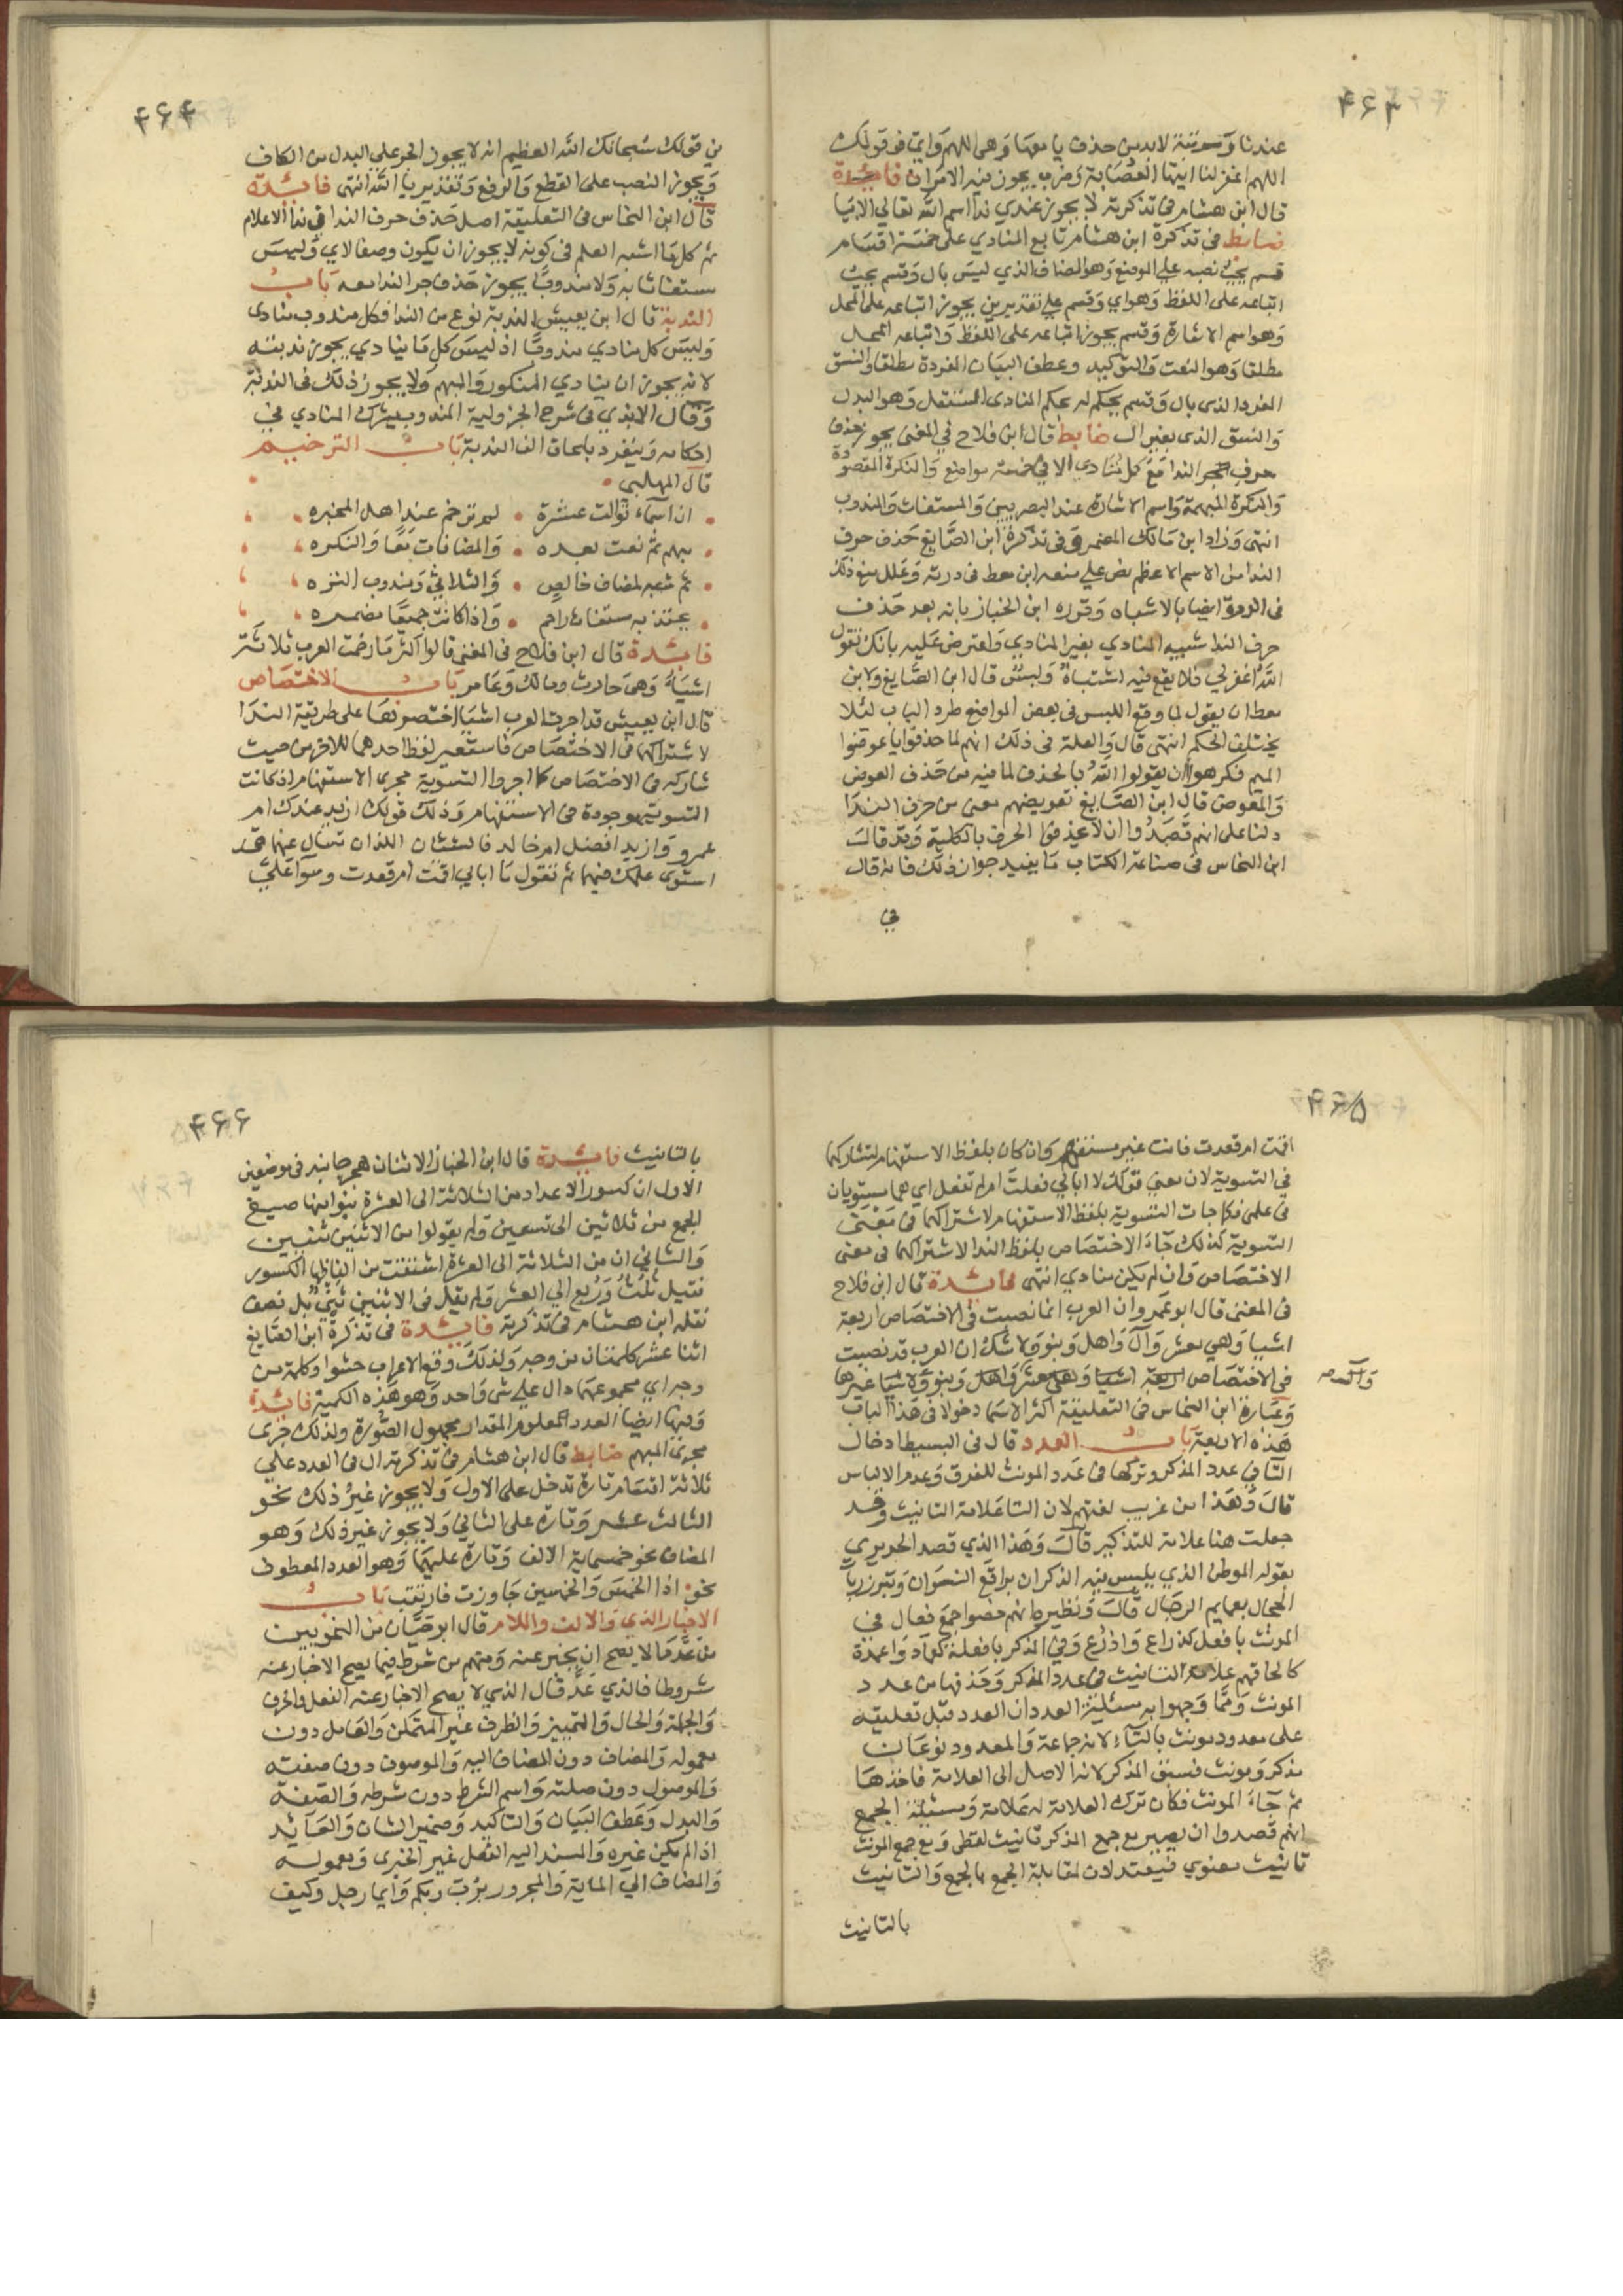 ۴۶۳
عندنا وسوتنة لابد من حذف يا معها وهى اللهم واي فى قولك
اللهم اغفر لنا ايتها العصابة وضرب يجوز فيه الامران فائدة
قال ابن هشام فى تذكرته لا يجوز عندي ندا اسم الله تعالى الا بيا
ضابط فى تذكرة ابن هشام تابع المنادي على خمسة اقسام
قسم يجب نصبه على الموضع وهو المضاف الذي ليس بال وقسم يجب
اتباعه على اللفظ وهو اي وقسم على تقديرين يجوز اتباعه على المحل
وهو اسم الاشارة وقسم يجوز اتباعه على اللفظ واتباعه المحل
مطلقا وهو النعت والتوكيد وعطف البيان المفردة مطلقا والنسق
المفرد الذى بال وقسم يحكم له بحكم المنادى المستقل وهو البدل
والنسق الذى بغير ال ضابط قال ابن فلاح في المغنى يجوز حذف
حرف الندا مع كل منادي الا في خمسة مواضع والنكرة المقصودة
والنكرة المبهمة واسم الاشارة عند البصريين والمستغاث والمندوب
انتهى وزاد ابن مالك المضمر وفى تذكرة ابن الصايغ حذف حرف
الندا من الاسم الاعظم نص على منعه ابن معط فى درته وعلل منع ذلك
فى الدرة ايضا بالاشباه وقرره ابن الخباز بانه بعد حذف
حرف الندا شبيه المنادي بغير المنادي واعترض عليه بانك تقول
الله اغفر لي فلا يقع فيه اشتباه ولبس قال ابن الصايغ ولابن
معط ان يقول لما وقع اللبس فى بعض المواضع طرد الباب لئلا
يختلف الحكم انتهى قال والعلة فى ذلك انهم لما حذفوا يا عوضوا
الميم فكرهوا ان يقولوا الله بالحذف لما فيه من حذف العوض
والمعوض قال ابن الصايغ تعويضهم معنى من حرف الندا
دلنا على انهم قصدوا ان لا يحذفوا الحرف بالكلية وقد قالت
ابن النحاس فى صناعة الكتاب ما يفيد جواز ذلك فانه قال
في
۴۶۴
من قولك سبحانك الله العظيم انه لا يجوز الجر على البدل من الكاف
ويجوز النصب على القطع والرفع وتقديره يا الله انتهى فائدة
قال ابن النحاس فى التعليقة اصل حذف حرف الندا في ندا الاعلام
ثم كل ما اشبه العلم فى كونه لا يجوز ان يكون وصفا لاي وليس
مستغاثا به ولا مندوبا يجوز حذف حرف الندا معه باب
الندبة قال ابن يعيش الندبة نوع من الندا فكل مندوب منادى
وليس كل منادي مندوبا اذ ليس كل ما ينادي يجوز ندبته
لانه يجوز ان ينادي المنكور والمبهم ولا يجوز ذلك فى الندبة
وقال الابدي فى شرح الجزولية المندوب يشرك المنادي في
احكامه وينفرد بالحاق الف الندبة باب الترخيم
قال المهلبي
ان اسماء توالت عشرة • ليس ترخم عند اهل المخبره
مبهم ثم نعت بعده • والمضافات معا والنكره
ثم شبه لمضاف خالص • والثلاثي ومندوب النزه
مستغاث راحم • واذا كانت جميعا مضمره
فائدة قال ابن فلاح فى المغنى قالوا اكثر ما رخمت العرب ثلاثة
اشياء وهى حارث ومالك وعامر باب الاختصاص
قال ابن يعيش قد اجرت العرب اشيا اختصوها على طريقة الندا
لاشتراكهما فى الاختصاص فاستعير لفظ احدهما للاخر من حيث
شاركه فى الاختصاص كما اجروا التسوية مجرى الاستفهام اذ كانت
التسوية موجودة فى الاستفهام وذلك قولك ازيد عندك ام
عمرو وازيد افضل ام خالد فالشئان اللذان تسال عنهما قد
استوى علمك فيهما ثم تقول ما ابالي اقمت ام قعدت وسوا علي
۴۶۵
اقمت ام قعدت فانت غير مستفهم وان كان بلفظ الاستفهام لتشاركهما
فى التسوية لان معنى قولك لا ابالي فعلت ام لم تفعل اي هما مستويان
فى علمى فكما جات التسوية بلفظ الاستفهام لاشتراكهما فى معنى
التسوية كذلك جاء الاختصاص بلفظ الندا لاشتراكهما فى معنى
الاختصاص وان لم يكن منادي انتهى فائدة قال ابن فلاح
فى المغنى قال ابو عمرو ان العرب انما نصبت فى الاختصاص اربعة
اشيا وهي معشر وآل واهل وبنو ولا شك ان العرب قد نصبت
فى الاختصاص اربعة اشيا وهى معشر واهل وبنو ولا شيا غيرها
وعبارة ابن النحاس فى التعليقة اكثر الاسما دخولا فى هذا الباب
هذه الاربعة باب العدد قال فى البسيط ادخال
التا في عدد المذكر وتركها فى عدد المونث للفرق وعدم الالباس
قال وهذا من غريب لغتهم لان التا علامة التانيث وقد
جعلت هنا علامة للتذكير قال وهذا الذي قصد الحريري
بقوله الموطن الذي يلبس فيه الذكران براقع النسوان وتبرز ربات
الحجال بعمايم الرجال قال ونظيره انهم خصوا جمع فعال في
المونث بافعل كذراع واذرع وفي المذكر بافعلة كعماد واعمدة
كالحاقهم علامة التانيث فى عدد المذكر وحذفها من عدد
المونث ومما وجهوا به مسئلة العدد ان العدد قبل تعليقه
على معدود مونث بالتاء لانه جماعة والمعدود نوعان
مذكر ومونث فسبق المذكر لانه الاصل الى العلامة فاخذها
ثم جاء المونث فكان ترك العلامة له علامة ومسئلة الجمع
انهم قصدوا ان يصير مع جمع المذكر تانيث لفظى ومع جمع المونث
تانيث معنوي فيعتدلان لمقابلة الجمع بالجمع والتانيث
بالتانيث
۴۶۶
بالتانيث فائدة قال ابن الخباز الاثنان هجر جانبه فى موضعين
الاول ان كسور الاعداد من الثلاثة الى العشرة بنوا منها صيغ
الجمع من ثلاثين الى تسعين ولم يقولوا من الاثنين ثنيين
والثاني ان من الثلاثة الى العشرة اشتقت من الفاظها الكسور
فقيل ثلث وربع الى العشر ولم يقل فى الاثنين ثني بل نصف
نقله ابن هشام فى تذكرته فائدة فى تذكرة ابن الصايغ
اثنا عشر كلمتان من وجه ولذلك وقع الاعراب حشوا وكلمة من
وجه اي مجموعهما دال على شى واحد وهو هذه الكمية فائدة
وفيها ايضا العدد المعلوم المقدار مجهول الصورة ولذلك جرى
مجرى المبهم ضابط قال ابن هشام فى تذكرته ال فى العدد على
ثلاثة اقسام تارة تدخل على الاول ولا يجوز غير ذلك نحو
الثالث عشر وتارة على الثاني ولا يجوز غير ذلك وهو
المضاف نحو خمسماية الالف وتارة عليهما وهو العدد المعطوف
نحو اذا الخمس والخمسين جاوزت فارتقب باب
الاخبار الذي والالف واللام قال ابو حيان من النحويين
من عد ما لا يصح ان يخبر عنه ومنهم من شرط فيما يصح الاخبار عنه
شروطا فالذي عد قال الذي لا يصح الاخبار عنه الفعل والحرف
والجملة والحال والتمييز والظرف غير المتمكن والعامل دون
معموله والمضاف دون المضاف اليه والموصوف دون صفته
والموصول دون صلته واسم الشرط دون شرطه والصفة
والبدل وعطف البيان والتاكيد وضمير الشان والعائد
اذا لم يكن غيره والمسند اليه الفعل غير الخبرى ومعموله
والمضاف الى المائة والمجرور برب وكم وايما رجل وكيف